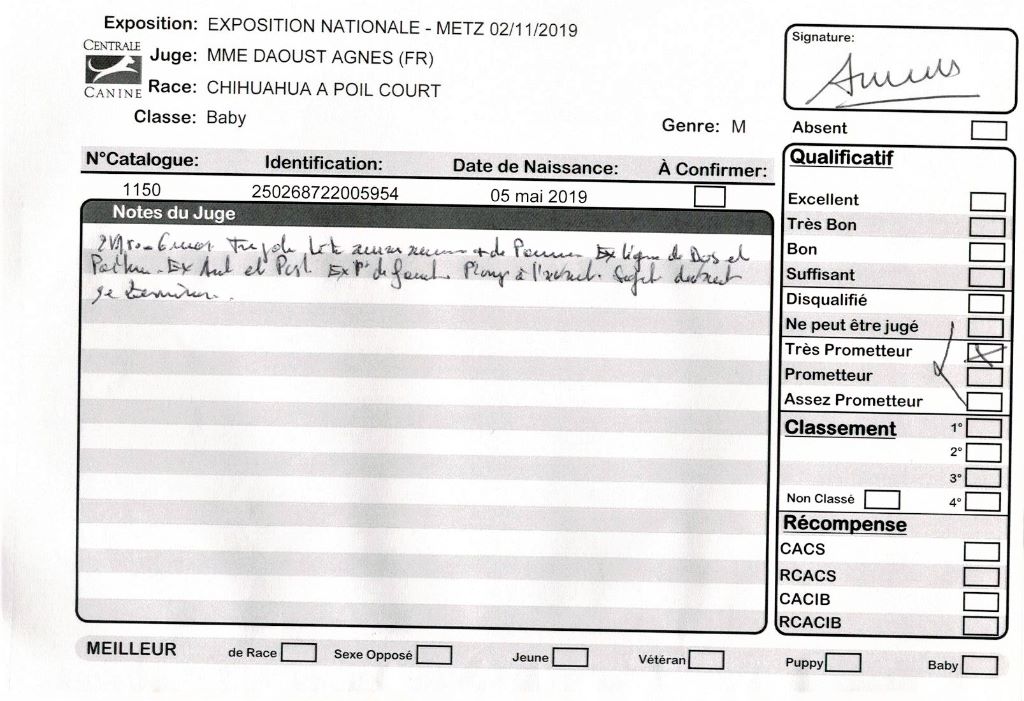 Exposition: EXPOSITION NATIONALE - METZ 02/11/2019
CENTRALE CANINE
Juge: MME DAOUST AGNES (FR)
Race: CHIHUAHUA A POIL COURT
Classe: Baby
Genre: M
Signature:
Absent
N°Catalogue: Identification: Date de Naissance: À Confirmer:
1150 250268722005954 05 mai 2019
Notes du Juge
de Ex ligne de Dos et
Ex Ant et Post. Ex de
se
Qualificatif
Excellent
Très Bon
Bon
Suffisant
Disqualifié
Ne peut être jugé
Très Prometteur
Prometteur
Assez Prometteur
Classement 1°
2°
3°
Non Classé 4°
Récompense
CACS
RCACS
CACIB
RCACIB
MEILLEUR de Race Sexe Opposé Jeune Vétéran Puppy Baby